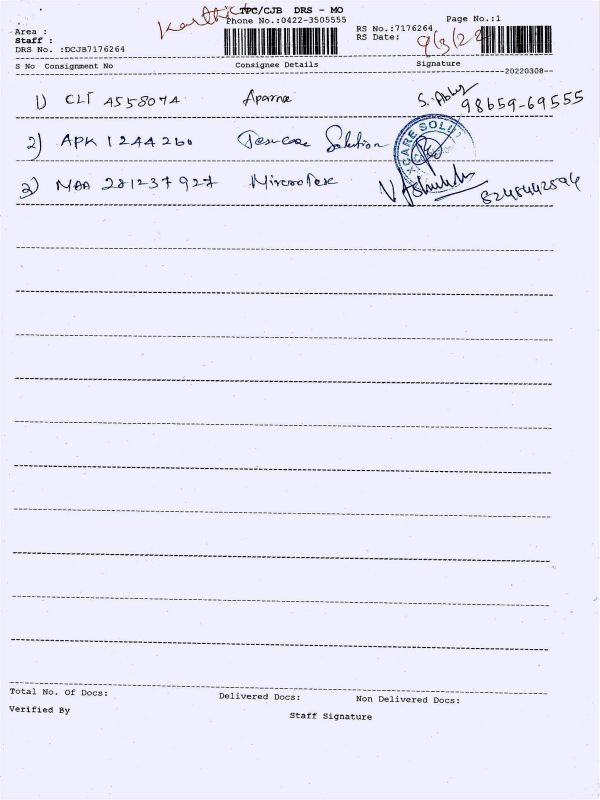 Karthick TPC/CJB DRS - MO
Phone No.:0422-3505555
Page No.:1
Area :
RS No.:7176264
Staff :
RS Date: 9/3/22
DRS No. :DCJB7176264
S No Consignment No Consignee Details Signature
20220308
1) CLT A558074 Aparna S. 98659-69555
2) APK 1244260 Solution CARE SOLU
3) MAA 281237927 8248442594
Total No. Of Docs: Delivered Docs: Non Delivered Docs:
Verified By Staff Signature